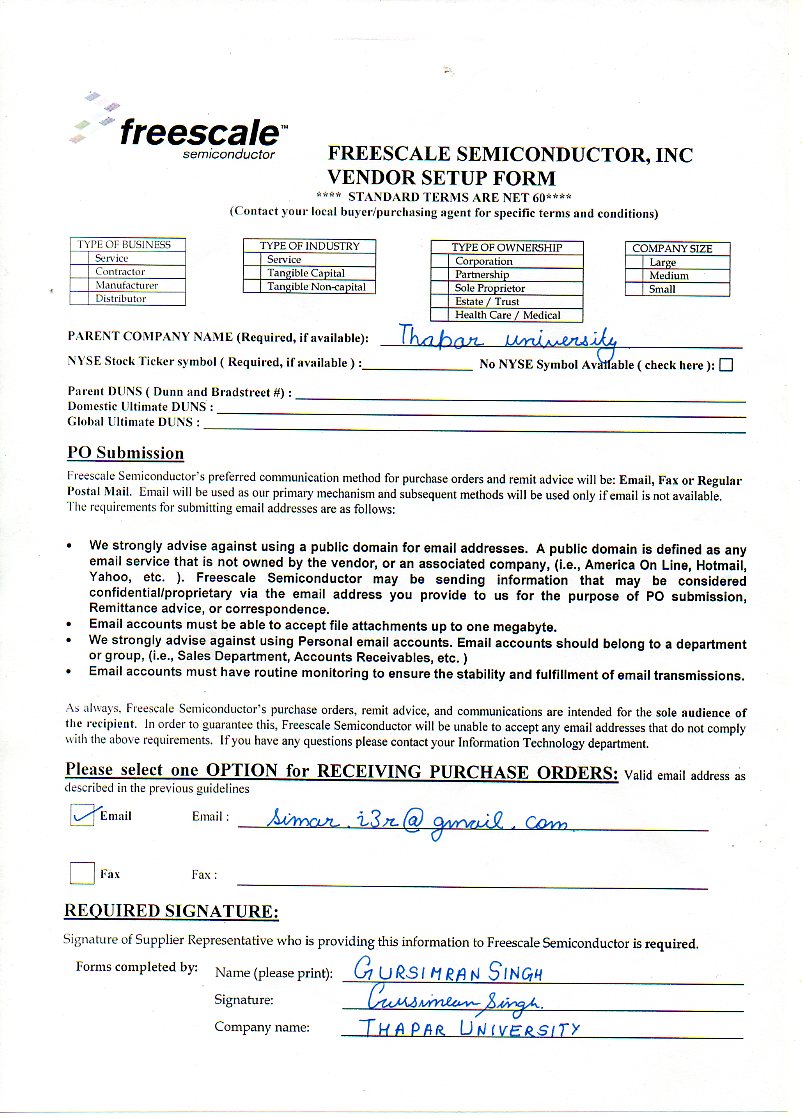 freescale™
semiconductor
FREESCALE SEMICONDUCTOR, INC
VENDOR SETUP FORM
**** STANDARD TERMS ARE NET 60****
(Contact your local buyer/purchasing agent for specific terms and conditions)
TYPE OF BUSINESS
Service
Contractor
Manufacturer
Distributor
TYPE OF INDUSTRY
Service
Tangible Capital
Tangible Non-capital
TYPE OF OWNERSHIP
Corporation
Partnership
Sole Proprietor
Estate / Trust
Health Care / Medical
COMPANY SIZE
Large
Medium
Small
PARENT COMPANY NAME (Required, if available): Thapar University
NYSE Stock Ticker symbol ( Required, if available ) : No NYSE Symbol Available ( check here ):
Parent DUNS ( Dunn and Bradstreet #) :
Domestic Ultimate DUNS :
Global Ultimate DUNS :
PO Submission
Freescale Semiconductor's preferred communication method for purchase orders and remit advice will be: Email, Fax or Regular
Postal Mail. Email will be used as our primary mechanism and subsequent methods will be used only if email is not available.
The requirements for submitting email addresses are as follows:
• We strongly advise against using a public domain for email addresses. A public domain is defined as any
email service that is not owned by the vendor, or an associated company, (i.e., America On Line, Hotmail,
Yahoo, etc. ). Freescale Semiconductor may be sending information that may be considered
confidential/proprietary via the email address you provide to us for the purpose of PO submission,
Remittance advice, or correspondence.
• Email accounts must be able to accept file attachments up to one megabyte.
• We strongly advise against using Personal email accounts. Email accounts should belong to a department
or group, (i.e., Sales Department, Accounts Receivables, etc. )
• Email accounts must have routine monitoring to ensure the stability and fulfillment of email transmissions.
As always, Freescale Semiconductor's purchase orders, remit advice, and communications are intended for the sole audience of
the recipient. In order to guarantee this, Freescale Semiconductor will be unable to accept any email addresses that do not comply
with the above requirements. If you have any questions please contact your Information Technology department.
Please select one OPTION for RECEIVING PURCHASE ORDERS: Valid email address as
described in the previous guidelines
Email Email : simar.i3r@gmail.com
Fax Fax :
REQUIRED SIGNATURE:
Signature of Supplier Representative who is providing this information to Freescale Semiconductor is required.
Forms completed by: Name (please print): GURSIMRAN SINGH
Signature: Gursimran Singh.
Company name: THAPAR UNIVERSITY